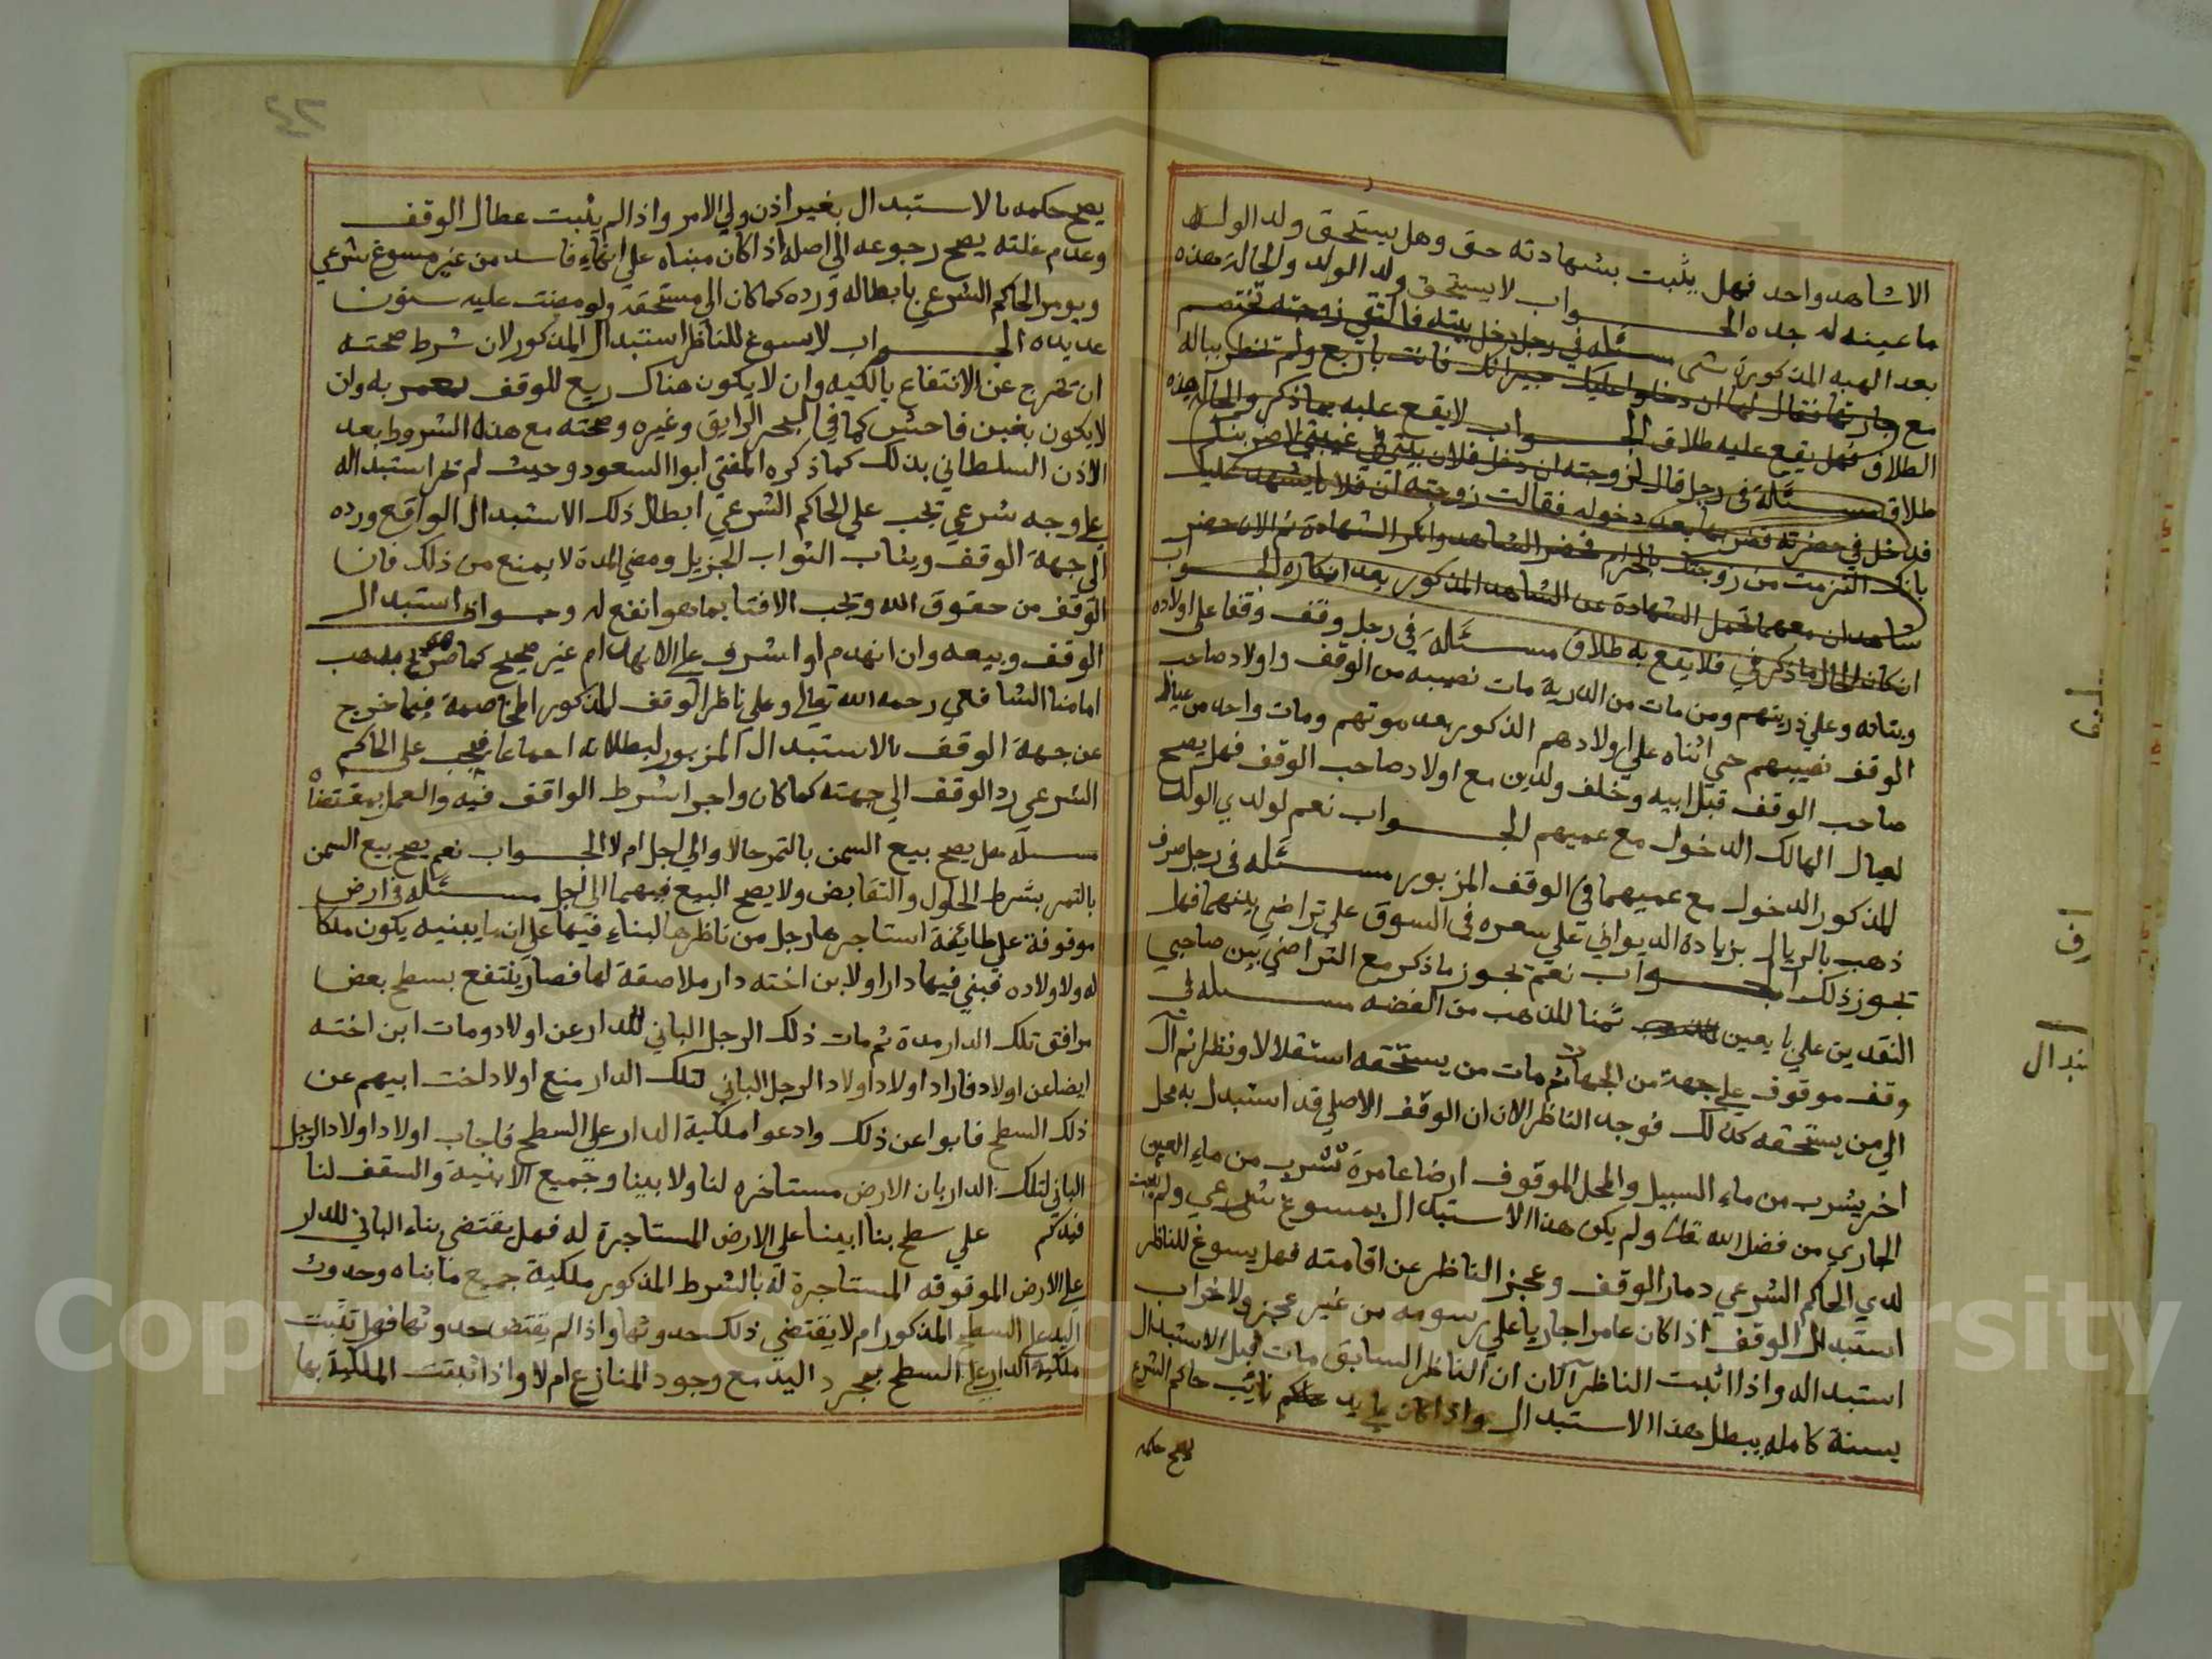 الا شاهد واحد فهل يثبت بشهادته حق وهل يستحق ولد الولد
ما عينه له جده الجواب لا يستحق ولد الولد والحالة هذه
بعد الهبه المذكورة شى مسئله في رجل دخل بيته فالتقى زوجته تختصم
مع جارتها فقال لها ان دخلوا عليك جيرانك فانت باربع ولم تخطر بباله
الطلاق فهل يقع عليه طلاق الجواب لا يقع عليه بما ذكر والحالة هذه
طلاق مسئلة في رجل قال لزوجته ان دخل فلان بيتي في غيبتي لاضربنك
فدخل في حضرته فضربها بعد دخوله فقالت زوجته ان فلانا يشهد عليك
بانك التزمت من زوجتك بالحرام فحضر الشاهد وانكر الشهادة ثم الان حضر
شاهدان معهما تحمل الشهادة عن الشاهد المذكور بعد انكاره الجواب
ان كان الحال ما ذكر في فلا يقع به طلاق مسئلة في رجل وقف وقفا على اولاده
وبناته وعلى ذريتهم ومن مات من الذرية مات نصيبه من الوقف واولاد صاحب
الوقف نصيبهم حي اثناه على اولادهم الذكور بعد موتهم ومات واحد من عيال
صاحب الوقف قبل ابيه وخلف ولدين مع اولاد صاحب الوقف فهل يصح
لعيال الهالك الدخول مع عميهم الجواب نعم لولدي الولد
المذكور الدخول مع عميهما في الوقف المزبور مسئله في رجل صرف
ذهب بالريال بزيادة الديواني على سعره في السوق على تراضي بينهما فهل
تجوز ذلك الجواب نعم تجوز ما ذكر مع التراضي بين صاحبي
النقدين على ما يعين ثمنا للذهب من الفضه مسئله في
وقف موقوف على جهة من الجهات ثم مات من يستحقه استقلالا ونظرا ثم آل
الي من يستحقه كذلك فوجد الناظر الان ان الوقف الاصلي قد استبدل به محل
اخر يشرب من ماء السبيل والمحل الموقوف ارضا عامرة تشرب من ماء العين
الجاري من فضل الله تعالى ولم يكن هذا الاستبدال بمسوغ شرعي ولم يثبت
لدي الحاكم الشرعي دمار الوقف وعجز الناظر عن اقامته فهل يسوغ للناظر
استبدال الوقف اذا كان عامرا جاريا على رسومه من غير عجز ولا خراب
استبداله واذا اثبت الناظر آلان ان الناظر السابق مات قبل الاستبدال
بسنة كامله يبطل هذا الاستبدال واذا كان نايب حاكم الشرع
يصح حكمه
يصح حكمه بالاستبدال بغير اذن ولي الامر واذا لم يثبت عطال الوقف
وعدم غلته يصح رجوعه الى اصله اذا كان مبناه على انهاء فاسد من غير مسوغ شرعي
ويومر الحاكم الشرعي بابطاله ورده كما كان الى مستحقه ولو مضت عليه سنون
عديده الجواب لا يسوغ للناظر استبدال المذكور لان شرط صحته
ان تخرج عن الانتفاع بالكليه وان لا يكون هناك ريع للوقف يعمر به وان
لا يكون بغبن فاحش كما في البحر الرايق وغيره وصحته مع هذه الشروط بعد
الاذن السلطاني بذلك كما ذكره المفتي ابوا السعود وحيث لم تخر استبداله
على وجه شرعي تجب على الحاكم الشرعي ابطال ذلك الاستبدال الواقع ورده
الى جهة الوقف ويثاب الثواب الجزيل ومضي المدة لا يمنع من ذلك فان
الوقف من حقوق الله وتجب الافتا بما هو انفع له وجواز استبدال
الوقف وبيعه وان انهدم او اشرف على الانهدام غير صحيح كما صرح به مذهب
امامنا الشافعي رحمه الله تعالى وعلى ناظر الوقف المذكور المخاصمة فيما خرج
عن جهة الوقف بالاستبدال المزبور لبطلانه اجماعا فيجب على الحاكم
الشرعي رد الوقف الي جهته كما كان واجرا شرط الواقف فيه والعمل بمقتضاه
مسئله هل يصح بيع السمن بالتمر حالا والى اجل ام لا الجواب نعم يصح بيع السمن
بالتمر بشرط الحلول والتقابض ولا يصح البيع فيهما الى اجل مسئله في ارض
موقوفة على طائفة استاجرها رجل من ناظرها لبناء فيها على ان ما يبنيه يكون ملكا
له ولاولاده فبنى فيها دارا ولابن اخته دار ملاصقة لها فصار ينتفع بسطح بعض
مرافق تلك الدار مدة ثم مات ذلك الرجل الباني للدار عن اولاد ومات ابن اخته
ايضا عن اولاد فاراد اولاد اولاد الرجل الباني لتلك الدار منع اولاد اخت ابيهم عن
ذلك السطح فابوا عن ذلك وادعوا ملكية الدار على السطح فاجاب اولاد اولاد الرجل
الباني لتلك الدار بان الارض مستاخره لنا ولا بينا وجميع الابنية والسقف لنا
فيدكم على سطح بنا ابينا على الارض المستاجرة له فهل يقتضي بناء الباني للدار
على الارض الموقوفه المستاجرة له بالشرط المذكور ملكية جميع ما بناه وحدوث
اليد على السطح المذكور ام لا يقتضي ذلك حدوثها واذا لم يقتض حدوثها فهل تثبت
ملكية الدار على السطح بمجرد اليد مع وجود المنازع ام لا واذا ثبتت الملكية بها
Copyright © King Saud University